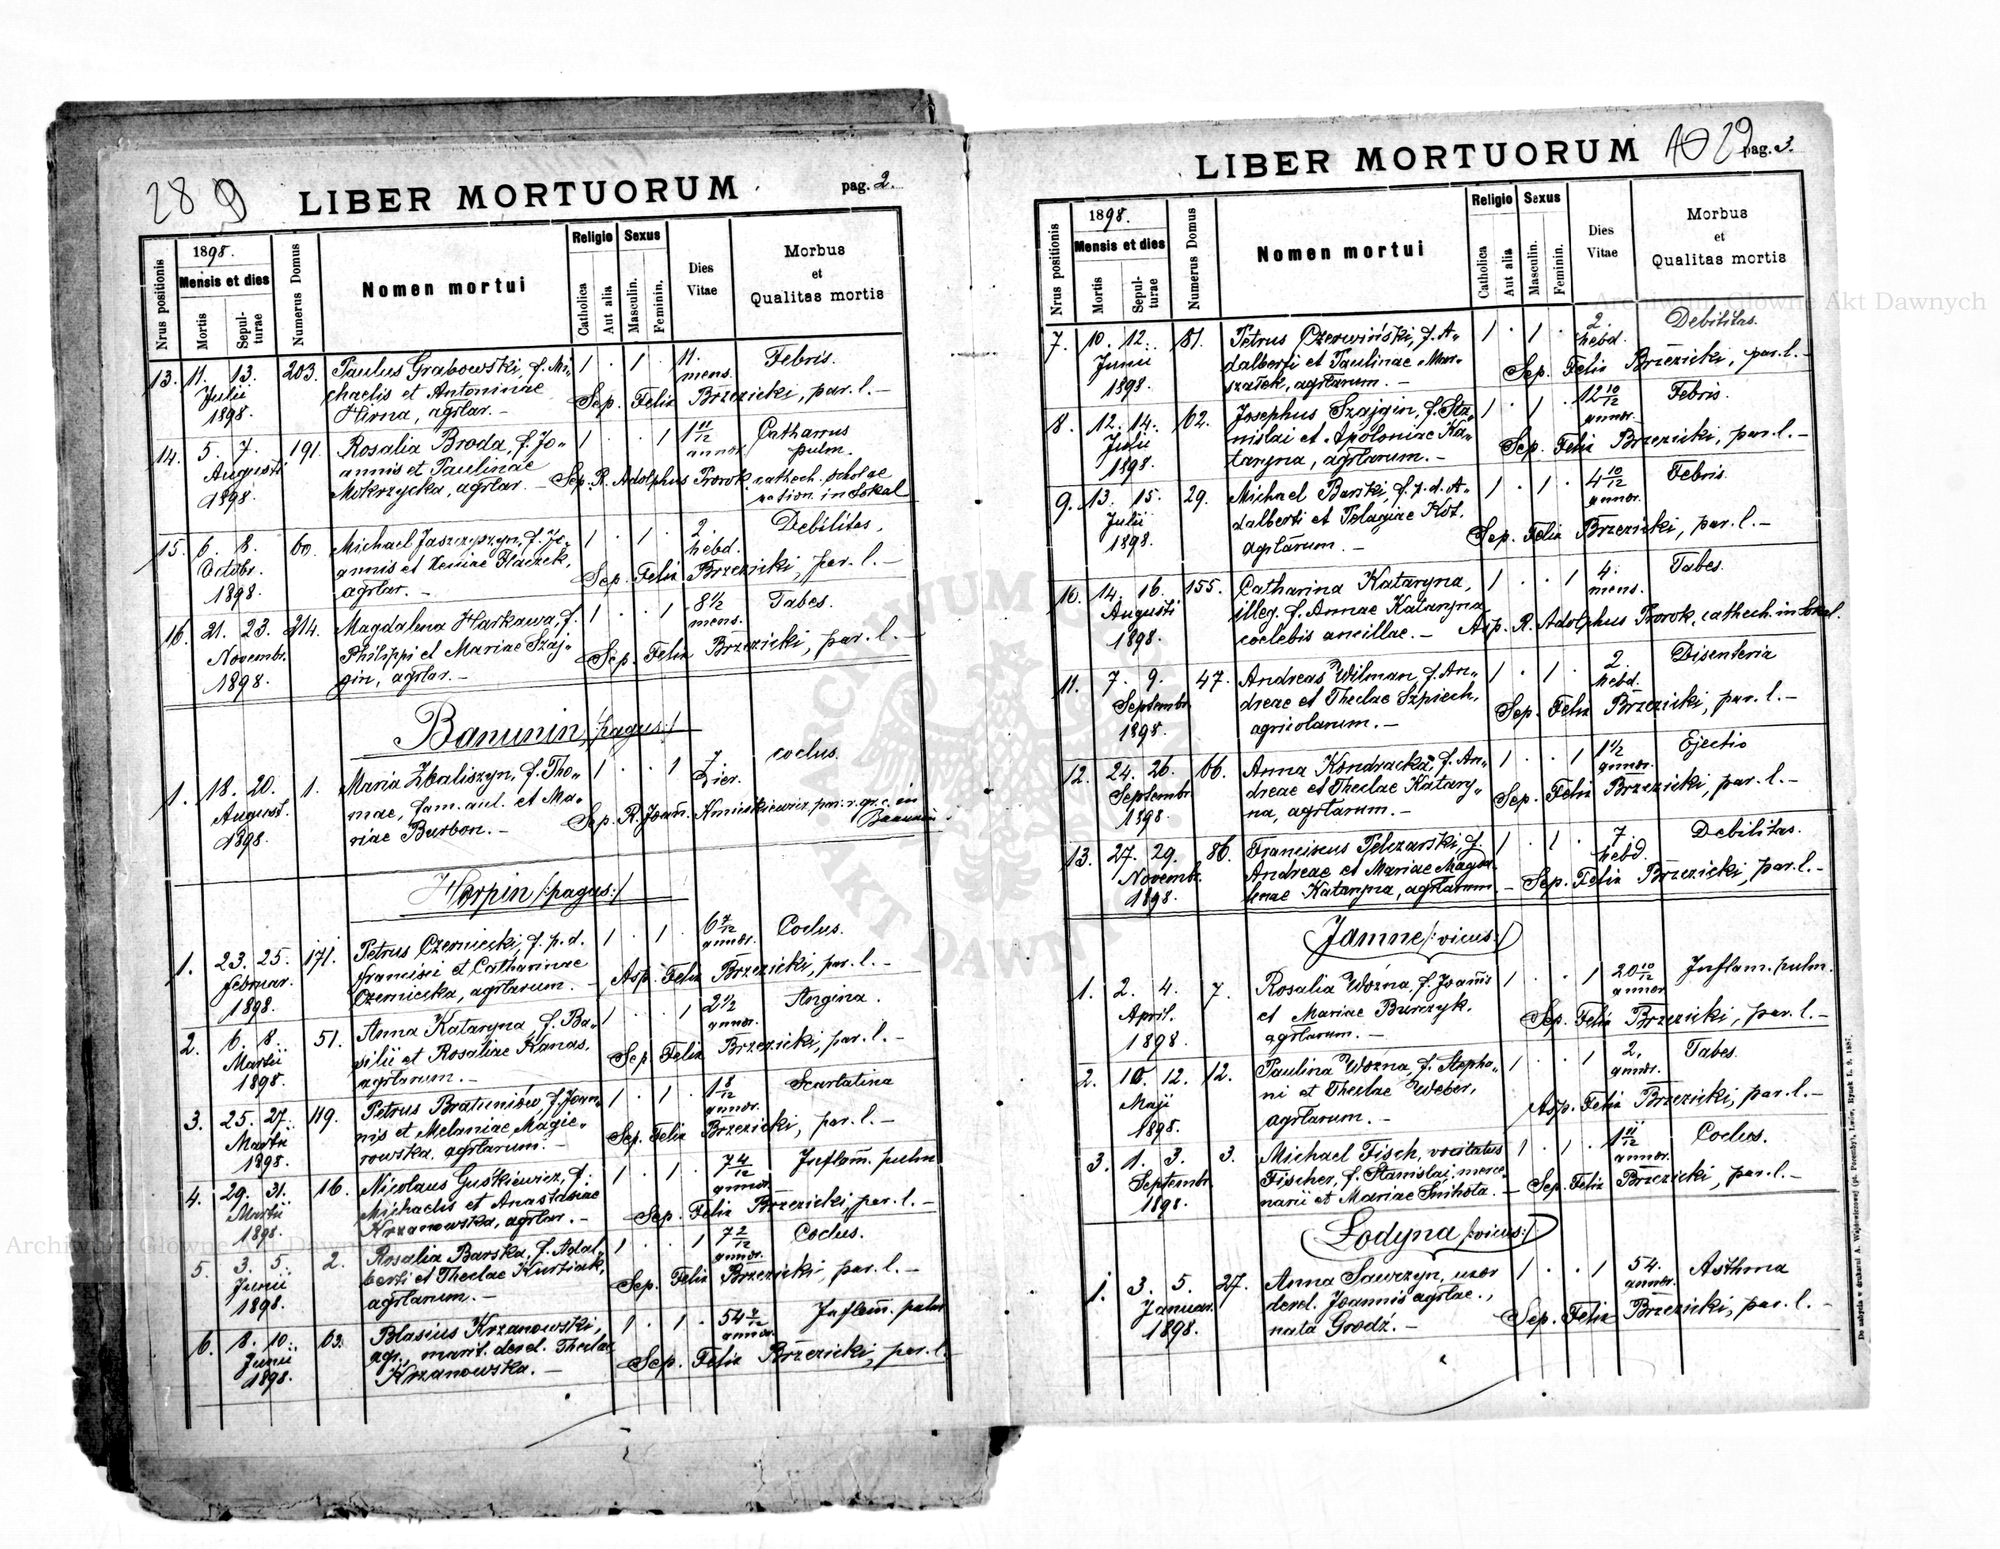 28 9
LIBER MORTUORUM
pag. 2.
Nrus positionis
1898.
Mensis et dies
Mortis
Sepul-
turae
Numerus Domus
Nomen mortui
Religio
Catholica
Aut alia
Sexus
Masculin.
Feminin.
Dies
Vitae
Morbus
et
Qualitas mortis
13. 11. 13. 203. Paulus Grabowski, f. Mi- 1 . 1 . 11. Febris.
Julii chaelis et Antoninae mens.
1898. Hirna, agrlar. – Sep. Felix Brzezicki, par. l. –
14. 5. 7. 191. Rosalia Broda, f. Jo- 1 . . 1 1 11/12 Catharrus
Augusti annis et Paulinae annor. pulm.
1898. Mokrzycka, agrlar. – Sep. R. Adolphus Prorok, cathech. scholae
nation. in Sokal
15. 6. 8. 60. Michael Jaszczyszyn, f. Jo- 1 . 1 . 2. Debilitas.
Octobr. annis et Xeniae Haczek, hebd.
1898. agrlar. – Sep. Felix Brzezicki, par. l. –
16. 21. 23. 214. Magdalena Harkawa, f. 1 . . 1 8 1/2 Tabes.
Novembr. Philippi et Mariae Szaj- mens.
1898. gin, agrlar. – Sep. Felix Brzezicki, par. l. –
Banunin /:pagus:/
1. 18. 20. 1. Maria Zbaliszyn, f. Tho- 1 . . 1 7 coclus.
August. mae, fam. aul. et Ma- Dier.
1898. riae Burbon. – Sep. R. Joan. Kmicikiewicz, par. r. gr. c. in
Banunin.
Horpin /:pagus:/
1. 23. 25. 171. Petrus Czerniecki, f. p. d. 1 . 1 . 6 7/12 Coclus.
Februar. Francisci et Catharinae annor.
1898. Czerniecka, agrlarum. – Asp. Felix Brzezicki, par. l. –
2. 6. 8. 51. Anna Kataryna, f. Ba- 1 . . 1 2 1/2 Angina.
Martii silii et Rosaliae Kanas, annor.
1898. agrlarum. – Sep. Felix Brzezicki, par. l. –
3. 25. 27. 119. Petrus Bratuniów, f. Joan- 1 . 1 . 1 8/12 Scarlatina
Martii nis et Melaniae Magie- annor.
1898. rowska, agrlarum. – Sep. Felix Brzezicki, par. l. –
4. 29. 31. 16. Nicolaus Guśkiewicz, f. 1 . 1 . 7 4/12 Inflam. pulm
Martii Michaelis et Anastasiae annor.
1898. Krzanowska, agrlar. – Sep. Felix Brzezicki, par. l. –
5. 3. 5. 2. Rosalia Barska, f. Adal- 1 . . 1 7 2/12 Coclus.
Junii berti et Theclae Kurtiak, annor.
1898. agrlarum. – Sep. Felix Brzezicki, par. l. –
6. 8. 10. 63. Blasius Krzanowski, 1 . 1 . 54 Inflam. pulm
Junii agr., marit. derel. Theclae annor.
1898. Krzanowska. – Sep. Felix Brzezicki, par. l.
LIBER MORTUORUM
29
pag. 3.
Nrus positionis
1898.
Mensis et dies
Mortis
Sepul-
turae
Numerus Domus
Nomen mortui
Religio
Catholica
Aut alia
Sexus
Masculin.
Feminin.
Dies
Vitae
Morbus
et
Qualitas mortis
7. 10. 12. 181. Petrus Czerwiński, f. A- 1 . 1 . 2. Debilitas.
Junii dalberti et Paulinae Mar- hebd.
1898. szałek, agrlarum. – Sep. Felix Brzezicki, par. l. –
8. 12. 14. 62. Josephus Szajgin, f. Sta- 1 . 1 . 12 10/12 Febris.
Julii nislai et Apoloniae Ka- annor.
1898. taryna, agrlarum. – Sep. Felix Brzezicki, par. l. –
9. 13. 15. 29. Michael Barski, f. p. d. A- 1 . 1 . 4 10/12 Febris.
Julii dalberti et Pelagiae Kot, annor.
1898. agrlarum. – Sep. Felix Brzezicki, par. l. –
10. 14. 16. 155. Catharina Kataryna, 1 . . 1 4. Tabes.
Augusti illeg. f. Annae Kataryna mens.
1898. coelebis ancillae. – Asp. R. Adolphus Prorok, cathech. in Sokal.
11. 7. 9. 47. Andreas Wilman, f. An- 1 . 1 . 2. Disenteria
Septembr. dreae et Theclae Szpiech, hebd.
1898. agricolarum. – Sep. Felix Brzezicki, par. l. –
12. 24. 26. 66. Anna Kondracka, f. An- 1 . . 1 1 1/2 Ejectio
Septembr. dreae et Theclae Katary- annor.
1898. na, agrlarum. – Sep. Felix Brzezicki, par. l. –
13. 27. 29. 86. Franciscus Pelczarski, f. 1 . 1 . 7. Debilitas.
Novembr. Andreae et Mariae Magda- hebd.
1898. lenae Kataryna, agrlarum – Sep. Felix Brzezicki, par. l. –
Jamne /:vicus:/
1. 2. 4. 7. Rosalia Woźna, f. Joannis 1 . . 1 20 10/12 Inflam. pulm.
April. et Mariae Burczyk, annor.
1898. agrlarum. – Sep. Felix Brzezicki, par. l. –
2. 10. 12. 12. Paulina Woźna, f. Stepha- 1 . . 1 2. Tabes.
Maji ni et Theclae Weber, annor.
1898. agrlarum. – Asp. Felix Brzezicki, par. l. –
3. 1. 3. 3. Michael Fisch, vocitatus 1 . 1 . 1 11/12 Coclus.
Septembr. Fischer, f. Stanislai, merce- annor.
1898. narii et Mariae Snihota. – Sep. Felix Brzezicki, par. l. –
Łodyna /:vicus:/
1. 3. 5. 27. Anna Sawczyn, uxor 1 . . 1 54. Asthma
Januar. derel. Joannis agrlae., annor.
1898. nata Grodź. – Sep. Felix Brzezicki, par. l. –
Do nabycia w drukarni A. Wajdowiczowej (pl. Poczaby), Lwów, Rynek L. 9. 1887.
Archiwum Główne Akt Dawnych
Archiwum Główne Akt Dawnych
ARCHIWUM GŁÓWNE AKT DAWNYCH